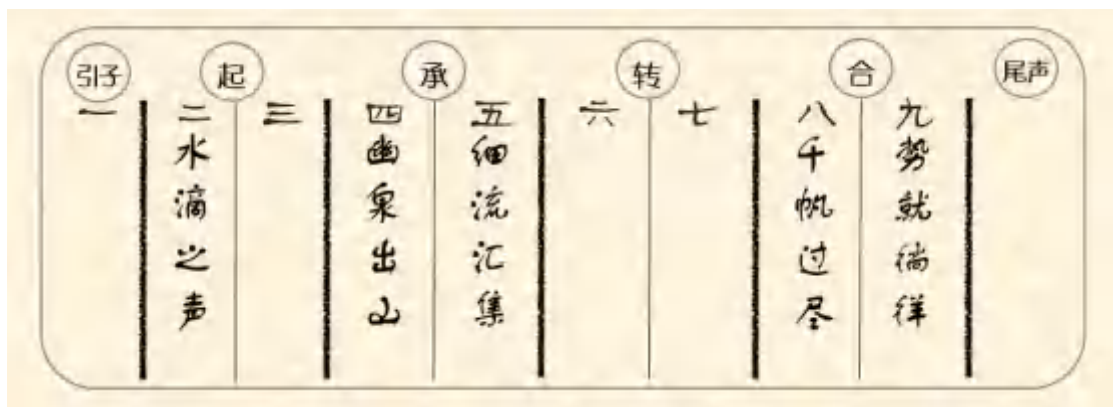 引子
起
承
转
合
尾声
一
二水滴之声
三
四幽泉出山
五细流汇集
六
七
八千帆过尽
九势就徜徉